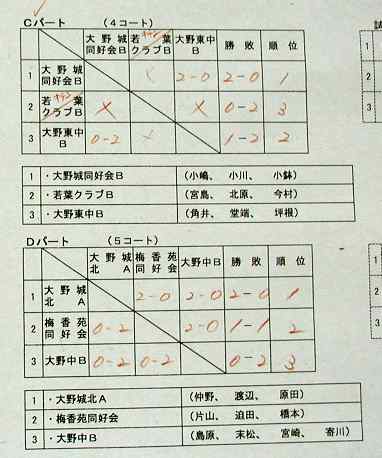 Cパート (4コート)
大野城同好会B 若葉クラブB 大野東中B 勝敗 順位
1 大野城同好会B 2-0 2-0 1
2 若葉クラブB × × 0-2 3
3 大野東中B 0-2 1-2 2
1 ・大野城同好会B (小嶋、 小川、 小鉢)
2 ・若葉クラブB (宮島、 北原、 今村)
3 ・大野東中B (角井、 堂端、 坪根)
Dパート (5コート)
大野城北A 梅香苑同好会 大野中B 勝敗 順位
1 大野城北A 2-0 2-0 2-0 1
2 梅香苑同好会 0-2 2-0 1-1 2
3 大野中B 0-2 0-2 0-2 3
1 ・大野城北A (仲野、 渡辺、 原田)
2 ・梅香苑同好会 (片山、 迫田、 橋本)
3 ・大野中B (島原、 末松、 宮崎、 寄川)